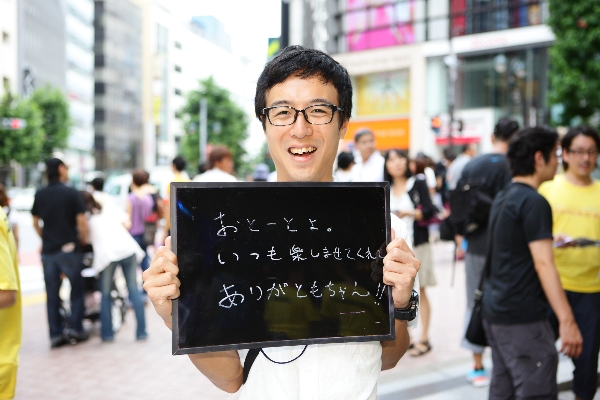 おとーとよ。
いつも楽しませてくれて
ありがともちゃん!!